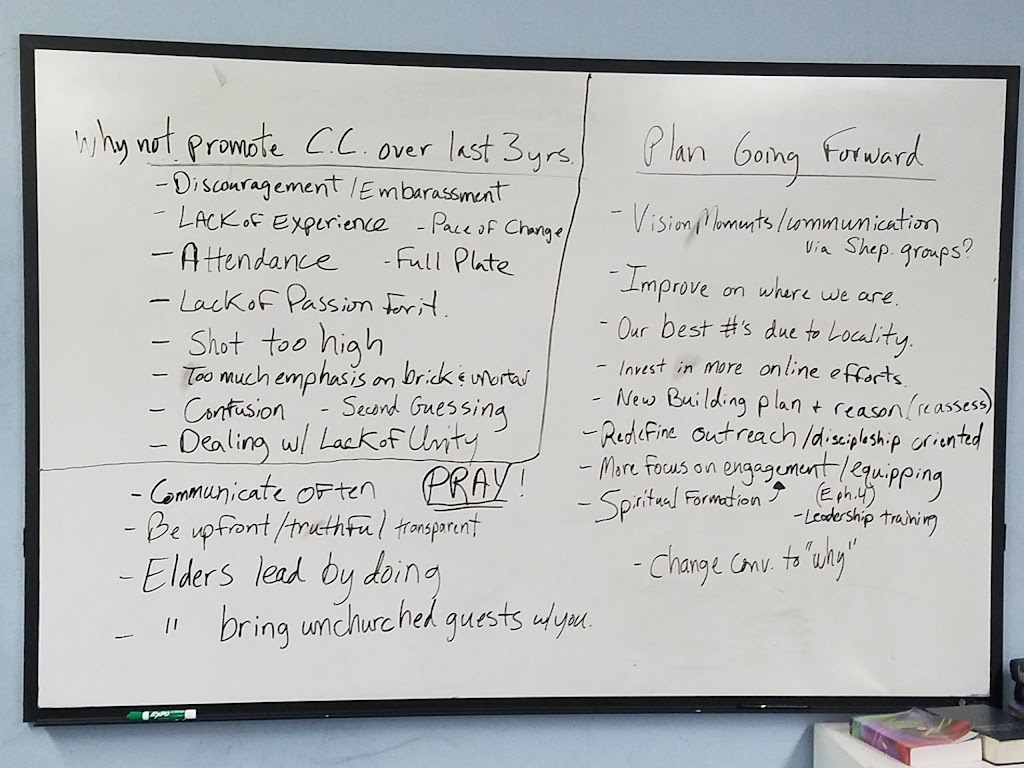 Why not promote C.C. over last 3 yrs.
- Discouragement / Embarassment
- LACK of Experience - Pace of Change
- Attendance - Full Plate
- Lack of Passion for it.
- Shot too high
- Too much emphasis on brick & mortar
- Confusion - Second Guessing
- Dealing w/ Lack of Unity
- Communicate OFten PRAY!
- Be upfront/truthful transparent
- Elders lead by doing
- " bring unchurched guests w/you.
Plan Going Forward
- Vision Moments/communication
via Shep. groups?
- Improve on where we are.
- Our best #'s due to Locality.
- Invest in more online efforts.
- New Building plan + reason (reassess)
- Redefine outreach/discipleship oriented
- More focus on engagement/equipping
- Spiritual Formation (Eph. 4)
- Leadership training
- Change conv. to "why"
EXPO